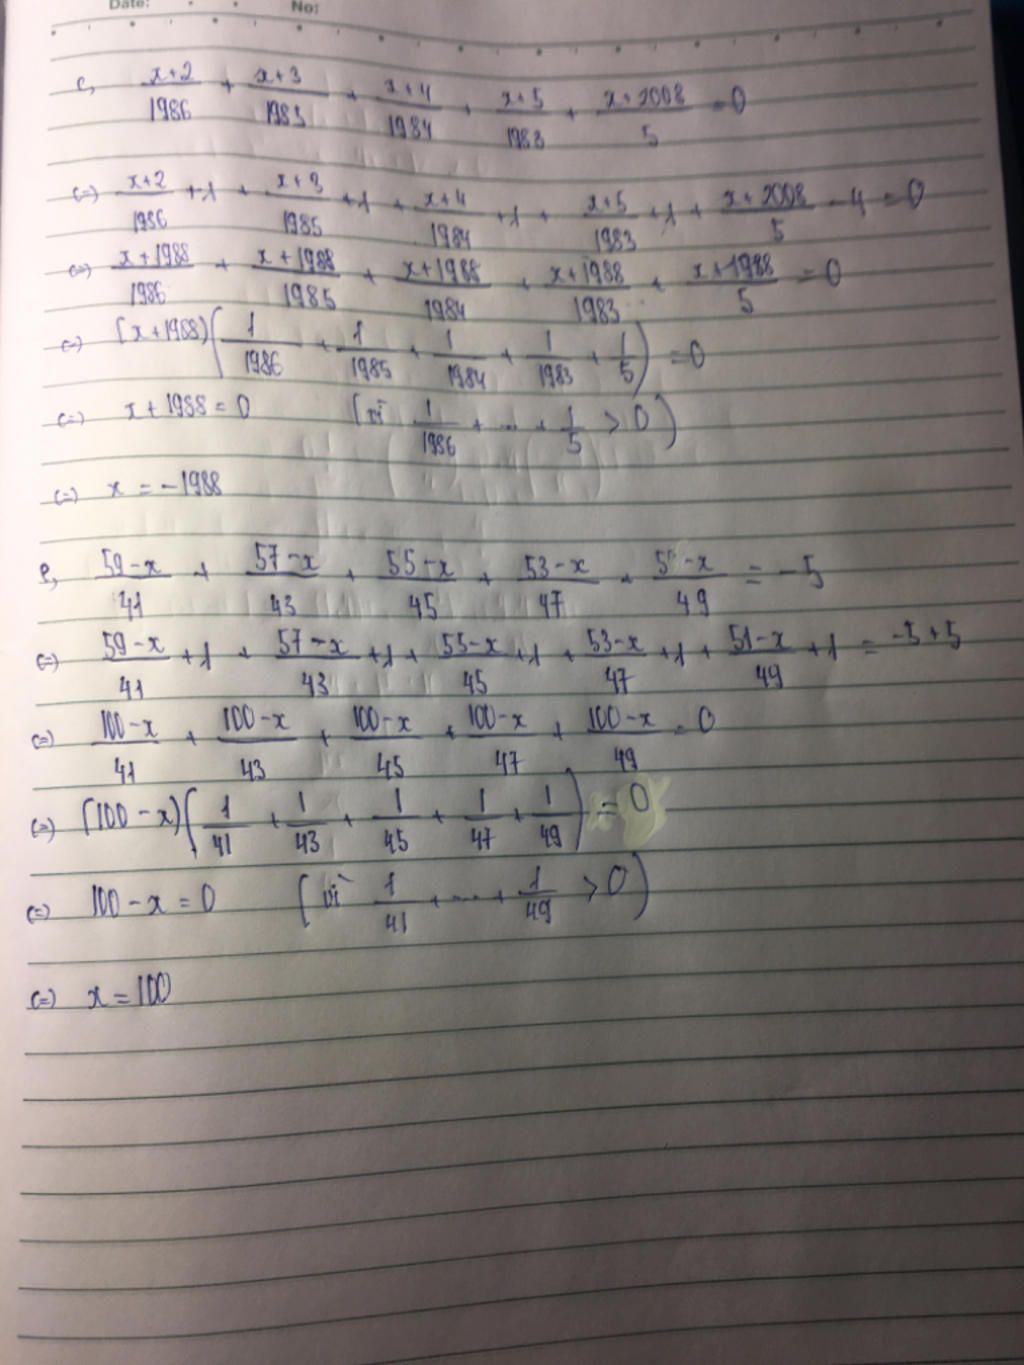 Date: No:
c, x+2/1986 + x+3/1985 + x+4/1984 + x+5/1983 + x+2008/5 = 0
(=) x+2/1986 +1 + x+3/1985 +1 + x+4/1984 +1 + x+5/1983 +1 + x+2008/5 - 4 = 0
(=) x+1988/1986 + x+1988/1985 + x+1988/1984 + x+1988/1983 + x+1988/5 = 0
(=) (x+1988)(1/1986 + 1/1985 + 1/1984 + 1/1983 + 1/5) = 0
(=) x+1988 = 0 (vì 1/1986 + ... + 1/5 > 0)
(=) x = -1988
e, 59-x/41 + 57-x/43 + 55-x/45 + 53-x/47 + 51-x/49 = -5
(=) 59-x/41 +1 + 57-x/43 +1 + 55-x/45 +1 + 53-x/47 +1 + 51-x/49 +1 = -5+5
(=) 100-x/41 + 100-x/43 + 100-x/45 + 100-x/47 + 100-x/49 = 0
(=) (100-x)(1/41 + 1/43 + 1/45 + 1/47 + 1/49) = 0
(=) 100-x = 0 (vì 1/41 + ... + 1/49 > 0)
(=) x = 100